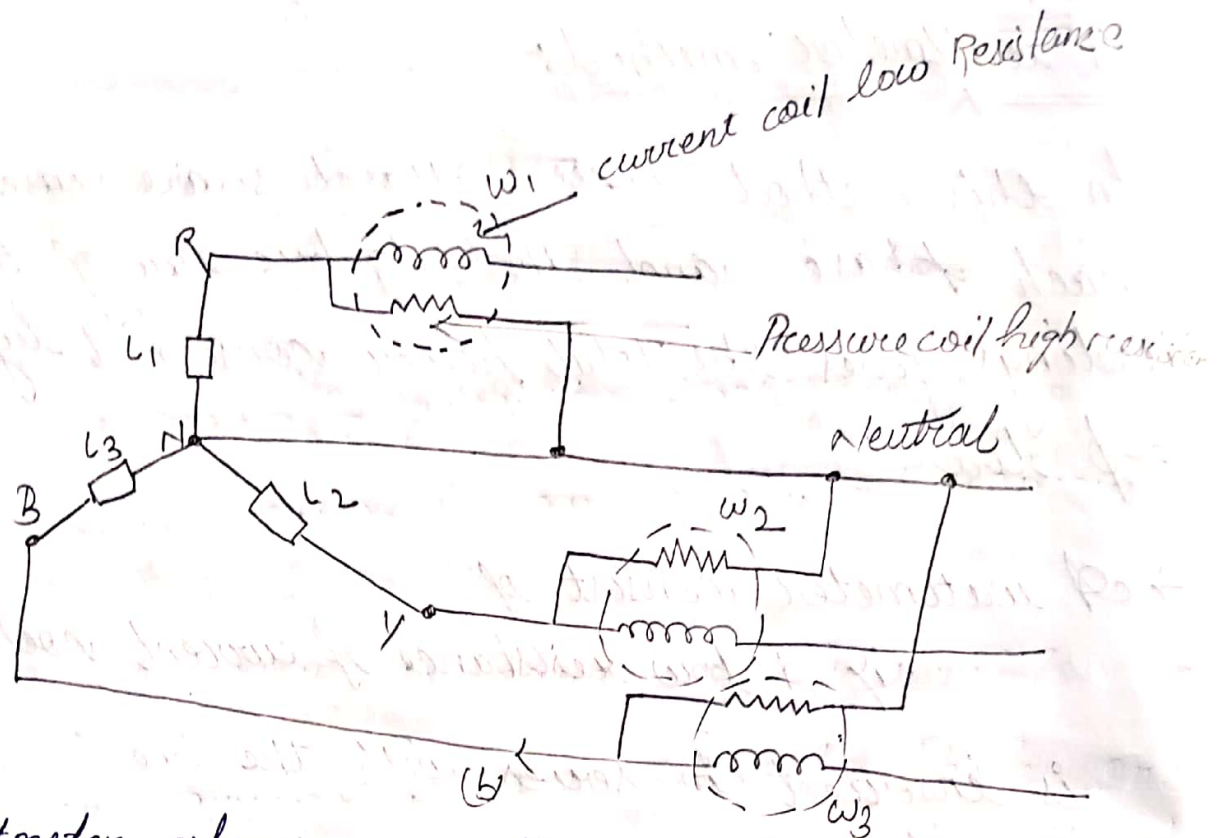 current coil low Resistance
W1
R
L1
Pressure coil high
N
Neutral
L3
L2
B
W2
Y
(b)
W3